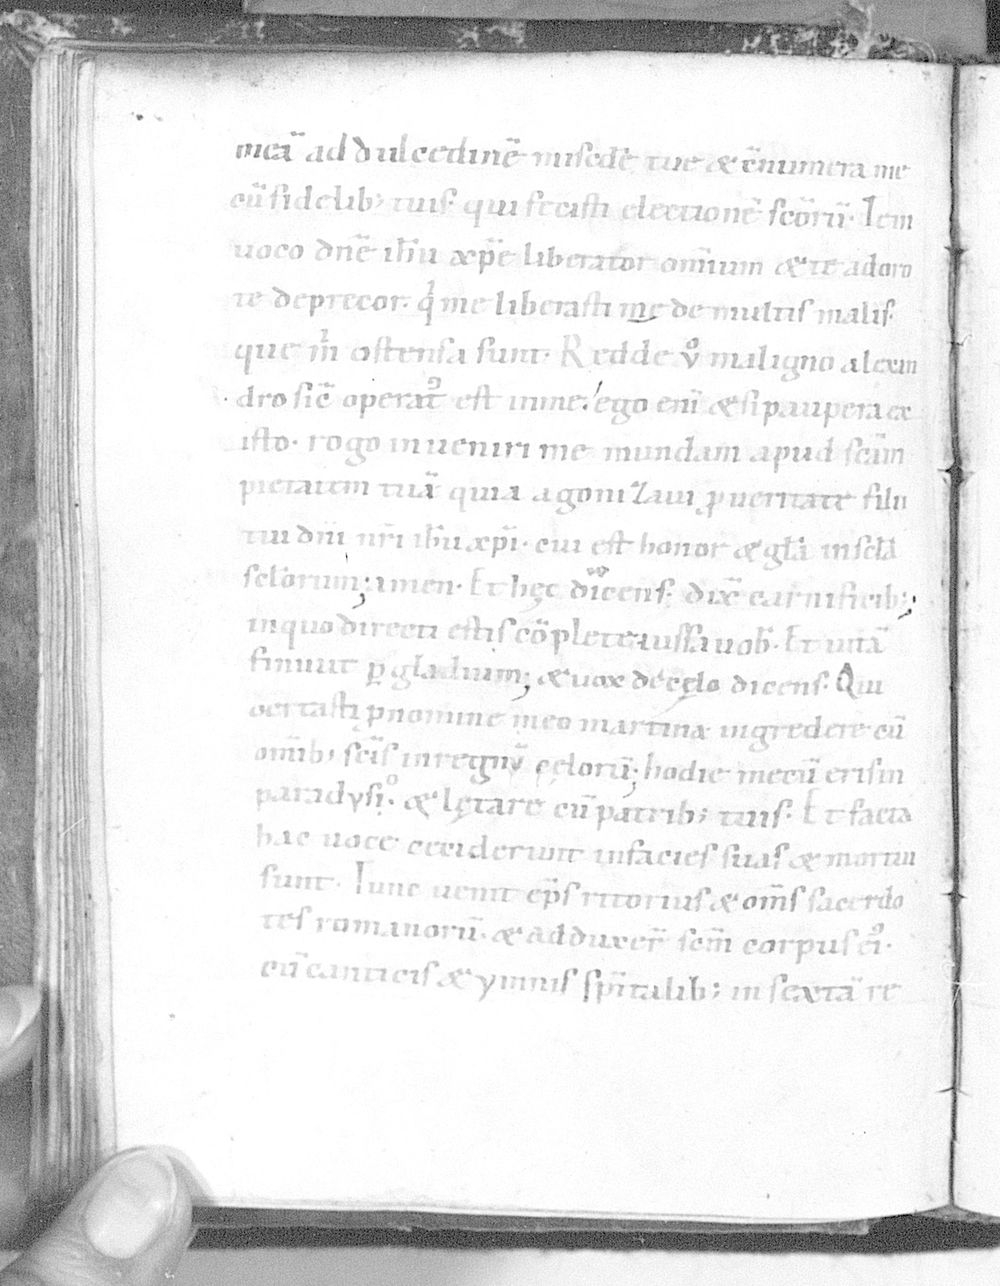 meā ad dulcedinē misedīe tue & ēnumera me
cū fidelib; tuis. qui fecisti electionē scōrū. Iem
uoco dn̄e ih̄u xp̄e liberator om̄ium & te adoro
te deprecor. q me liberasti me de multis malis.
que m̄ ostensa sunt. Redde v̊ maligno alexin
dro sic̄ operat᷒ est in me. ego eni & si paupera ex
isto. rogo inueniri me mundam apud scām
pietatem tuā quia agonizaui ꝓ ueritate filii
tui dn̄i nr̄i ih̄u xp̄i. cui est honor & gl̄a in scl̄a
scl̄orum; amen. Et hęc dicens. dix̄ carnificib;
in quo directi estis cōplete iussa uob̄. Et uitā
finiuit ꝑ gladium; & uox de cęlo dicens. Qui
certasti ꝓ nomine meo martina ingredere cū
om̄ib; scīs in regnū cęlorū; hodie mecū eris in
paradysi̊. & lętare cū patrib; tuis. Et facta
hac uoce ceciderunt in facies suas & mortui
sunt. Tunc uenit ep̄s ritorius & om̄s sacerdo
tes romanorū. & adduxer̄ scm̄ corpus ei᷒.
cū canticis & ymnis sp̄italib; in sextā re